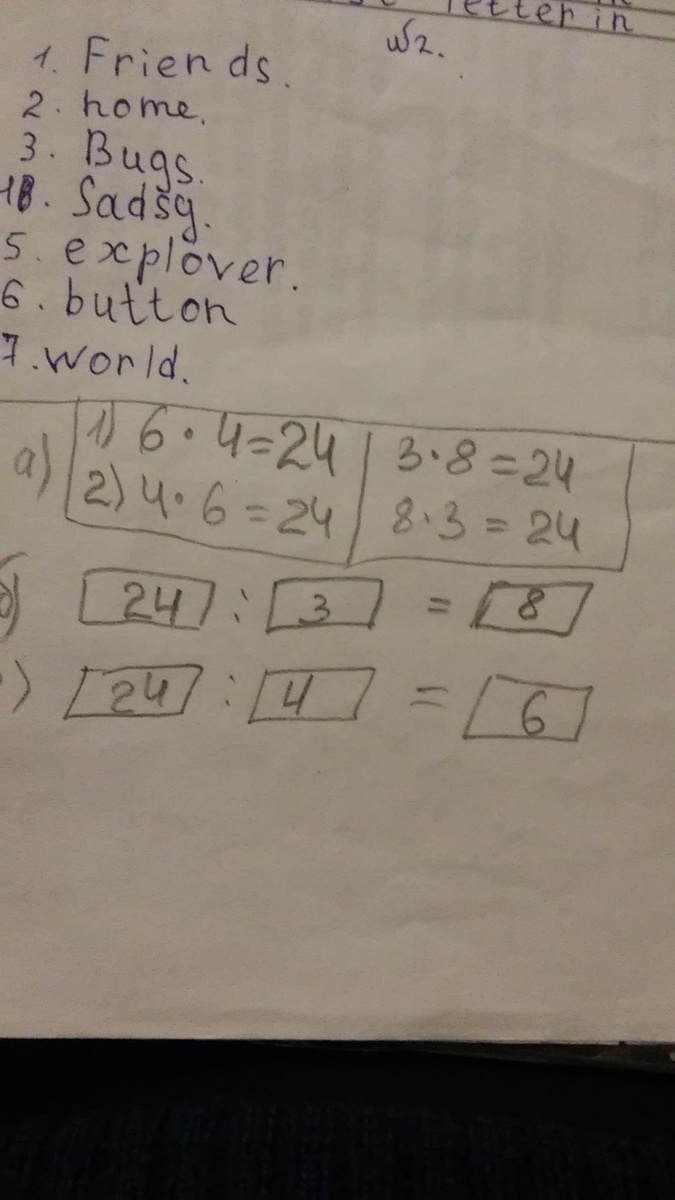 letter in
№2.
1. Friends.
2. home.
3. Bugs.
18. Sadsg.
5. explover.
6. button
7. world.
а) 1) 6 · 4 = 24 3 · 8 = 24
2) 4 · 6 = 24 8 · 3 = 24
б) 24 : 3 = 8
) 24 : 4 = 6